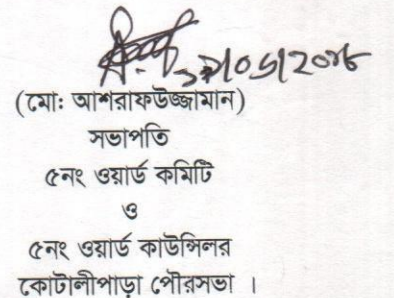 (মোঃ আশরাফউজ্জামান)
সভাপতি
৫নং ওয়ার্ড কমিটি
ও
৫নং ওয়ার্ড কাউন্সিলর
কোটালীপাড়া পৌরসভা ।